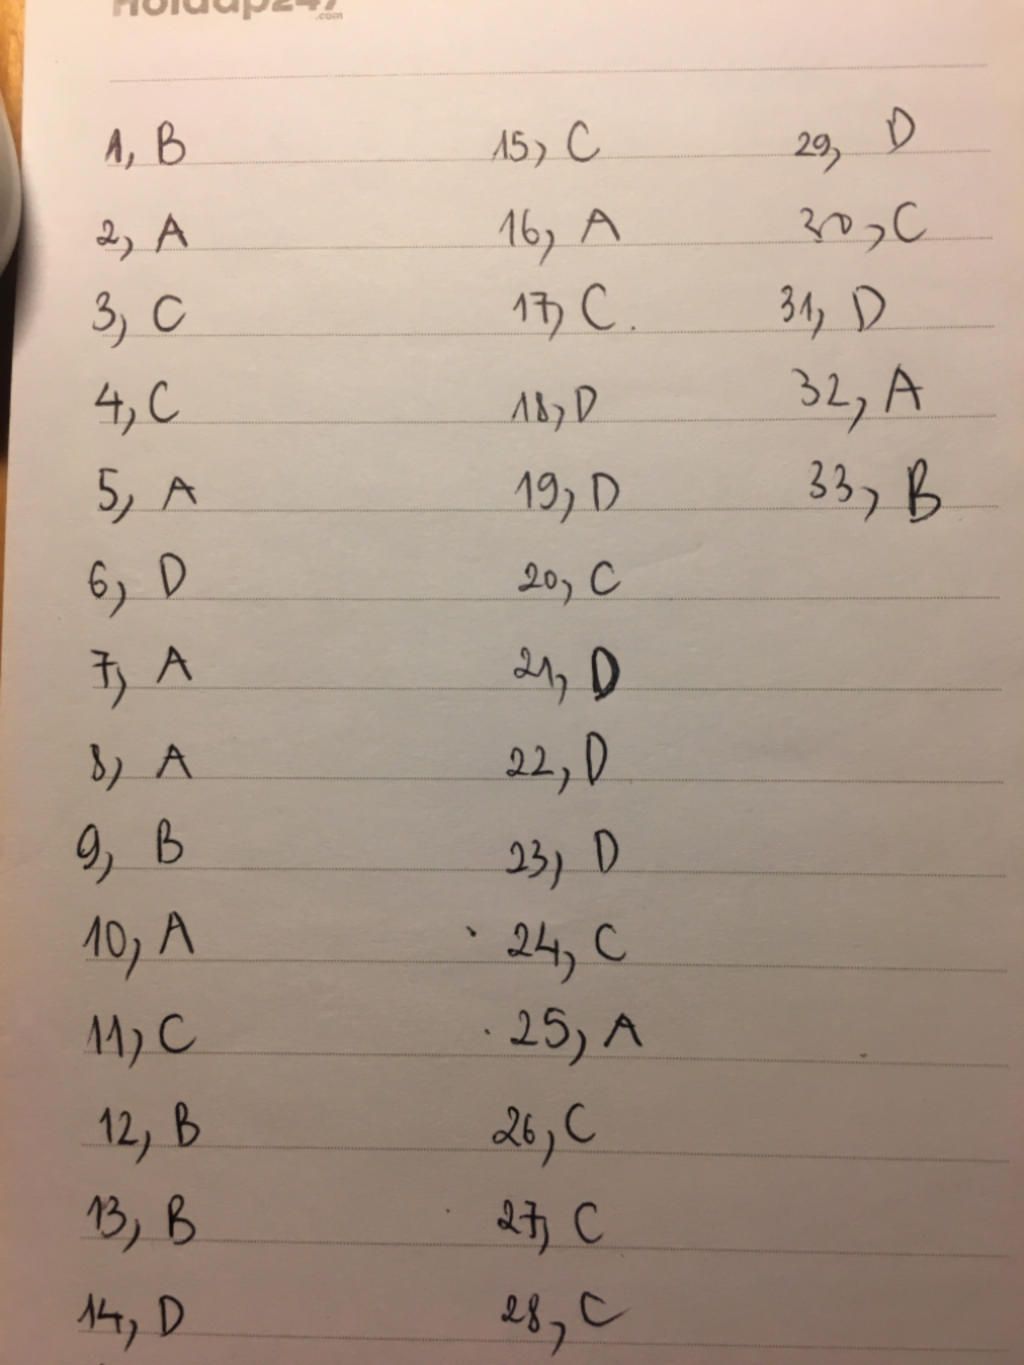 Hoidap247
.com
1, B
2, A
3, C
4, C
5, A
6, D
7, A
8, A
9, B
10, A
11, C
12, B
13, B
14, D
15, C
16, A
17, C.
18, D
19, D
20, C
21, D
22, D
23, D
24, C
25, A
26, C
27, C
28, C
29, D
30, C
31, D
32, A
33, B